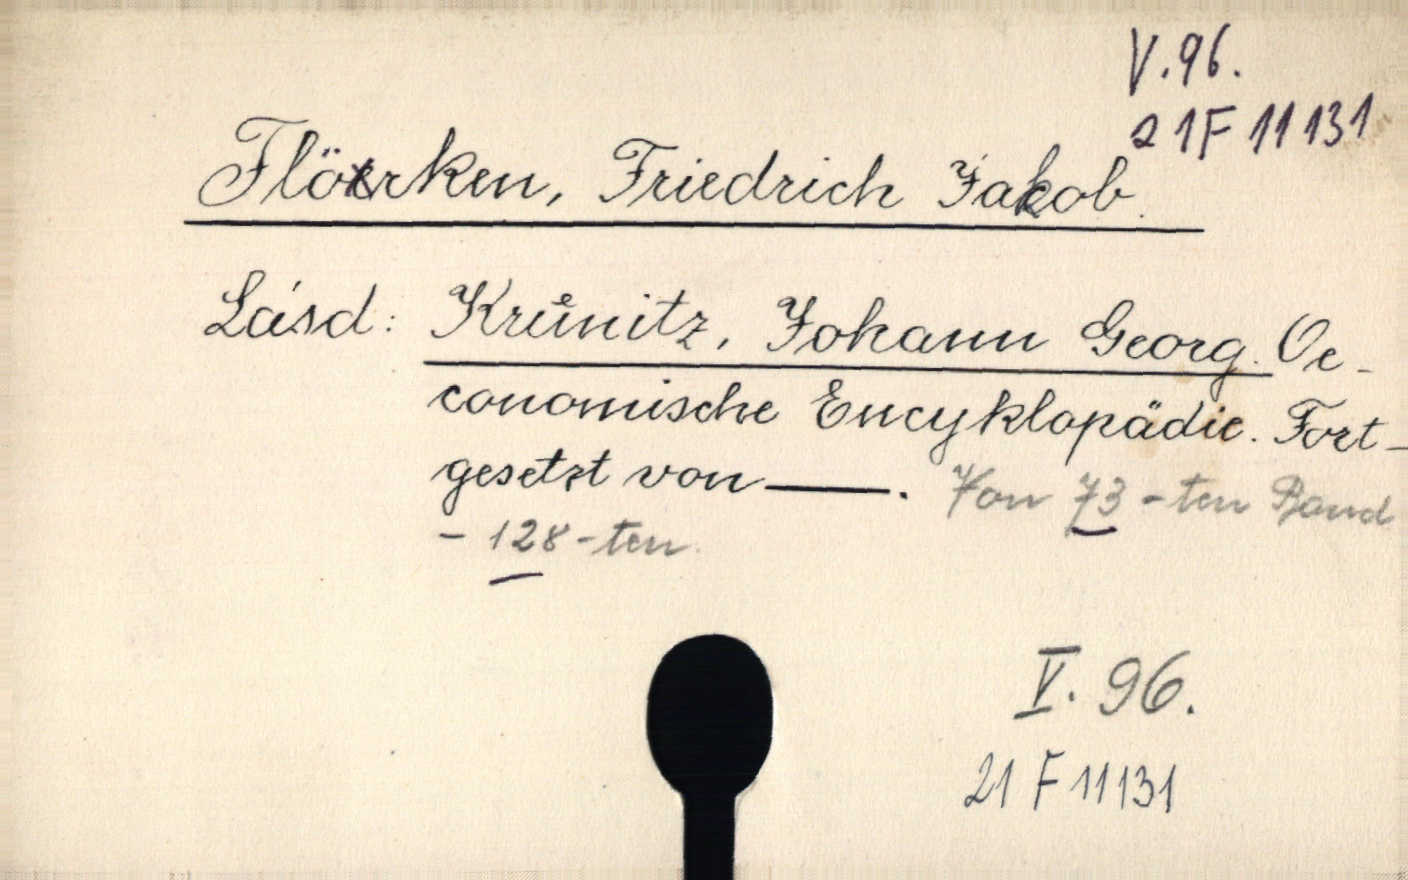 V.96.
21F 11131
Flörken, Friedrich Jakob.
Lásd: Krünitz, Johann Georg. Oe-
conomische Encyklopädie. Fort-
gesetzt von ——. Von 73-ten Band
- 128-ten.
V. 96.
21 F 11131